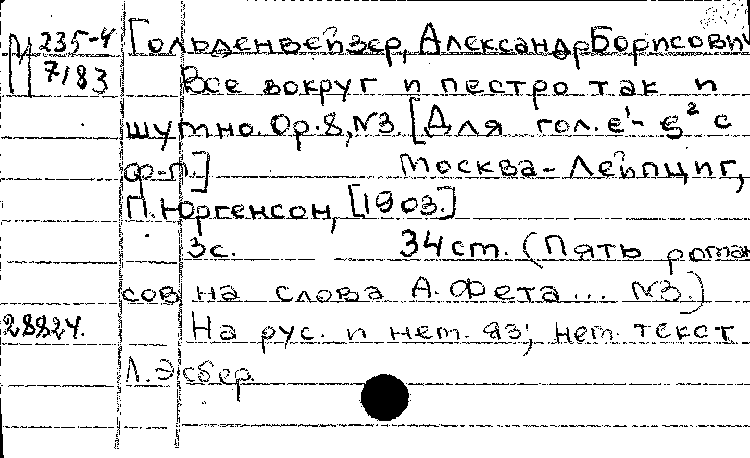 М 235-4 Гольденвейзер, Александр Борисович
7183 Все вокруг и пестро так и
шумно. Op.8, N3. [Для гол. e¹-g² с
ф-п.] Москва-Лейпциг,
П. Юргенсон, [1903.]
3с. 34см. (Пять роман
сов на слова А. Фета... N3.)
28824. На рус. и нем. яз; нем. текст
Л. Эсбер